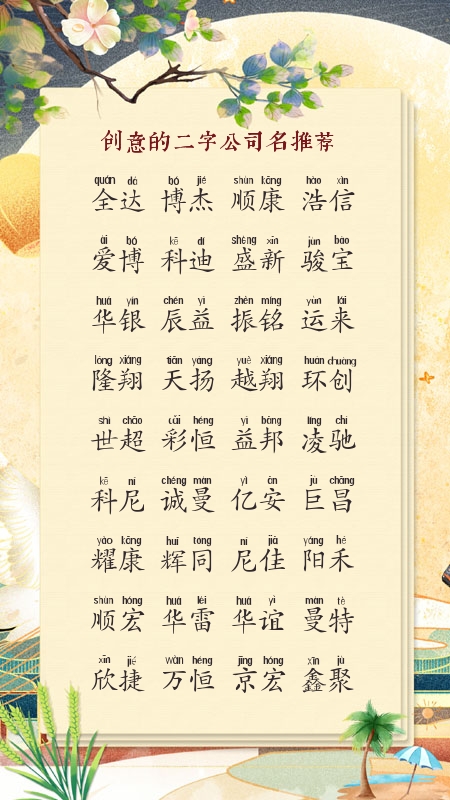 创意的二字公司名推荐
quán dá bó jié shùn kāng hào xìn
全达 博杰 顺康 浩信
ài bó kē dí shèng xīn jùn bǎo
爱博 科迪 盛新 骏宝
huá yín chén yì zhèn míng yùn lái
华银 辰益 振铭 运来
lóng xiáng tiān yáng yuè xiáng huán chuàng
隆翔 天扬 越翔 环创
shì chāo cǎi héng yì bāng líng chí
世超 彩恒 益邦 凌驰
kē ní chéng màn yì ān jù chāng
科尼 诚曼 亿安 巨昌
yào kāng huī tóng ní jiā yáng hé
耀康 辉同 尼佳 阳禾
shùn hóng huá léi huá yì màn tè
顺宏 华雷 华谊 曼特
xīn jié wàn héng jīng hóng xīn jù
欣捷 万恒 京宏 鑫聚